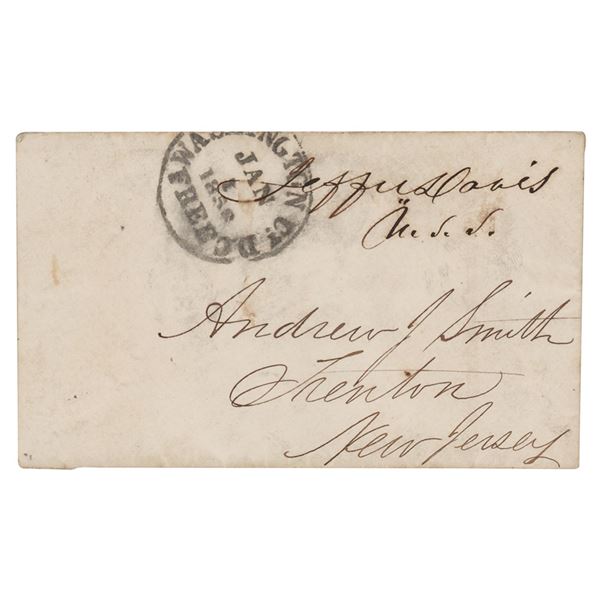 WASHINGTON CY. D.C. FREE
JAN
185
Jeffn Davis
U.S.S.
Andrew J Smith
Trenton
New Jersey